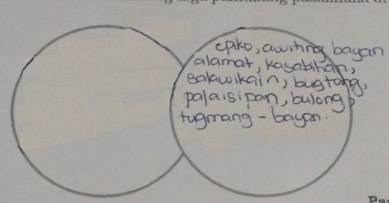 epiko, awiting bayan
alamat, kasabihan,
salawikain, bugtong,
palaisipan, bulong,
tugmang - bayan.